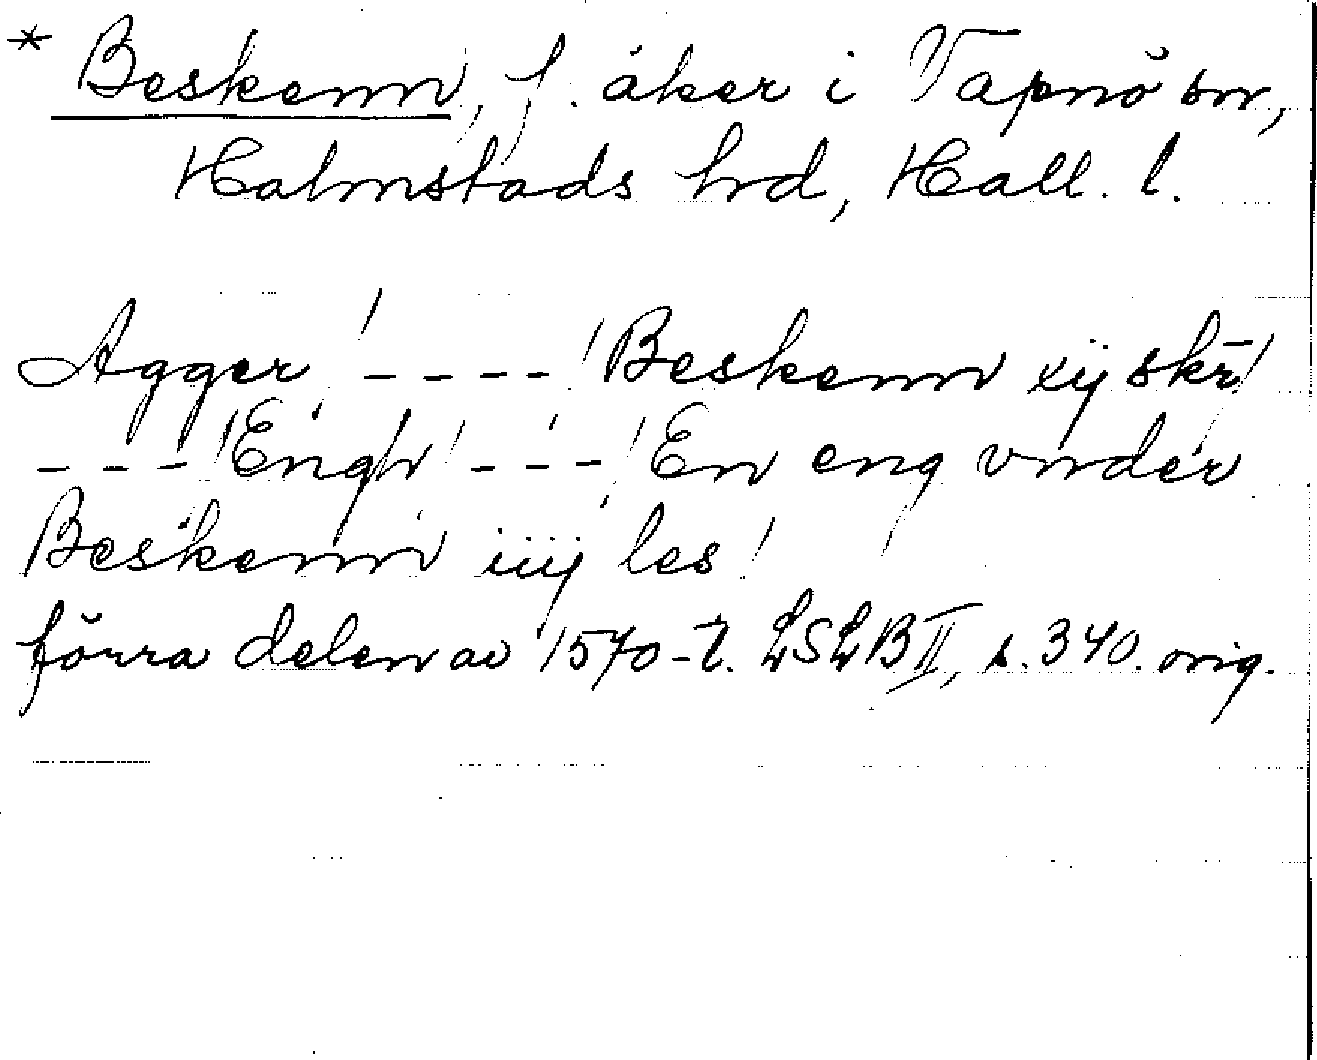 * Beskenn, f. åker i Vapnö sn,
Halmstads hrd, Hall. l.
Agger / - - - - / Beskenn xij skr̄ /
- - - / Engh / - - - / En eng vnder
Beskenn iiij les /
förra delen av 1570-t. LSLB II, s. 340. orig.